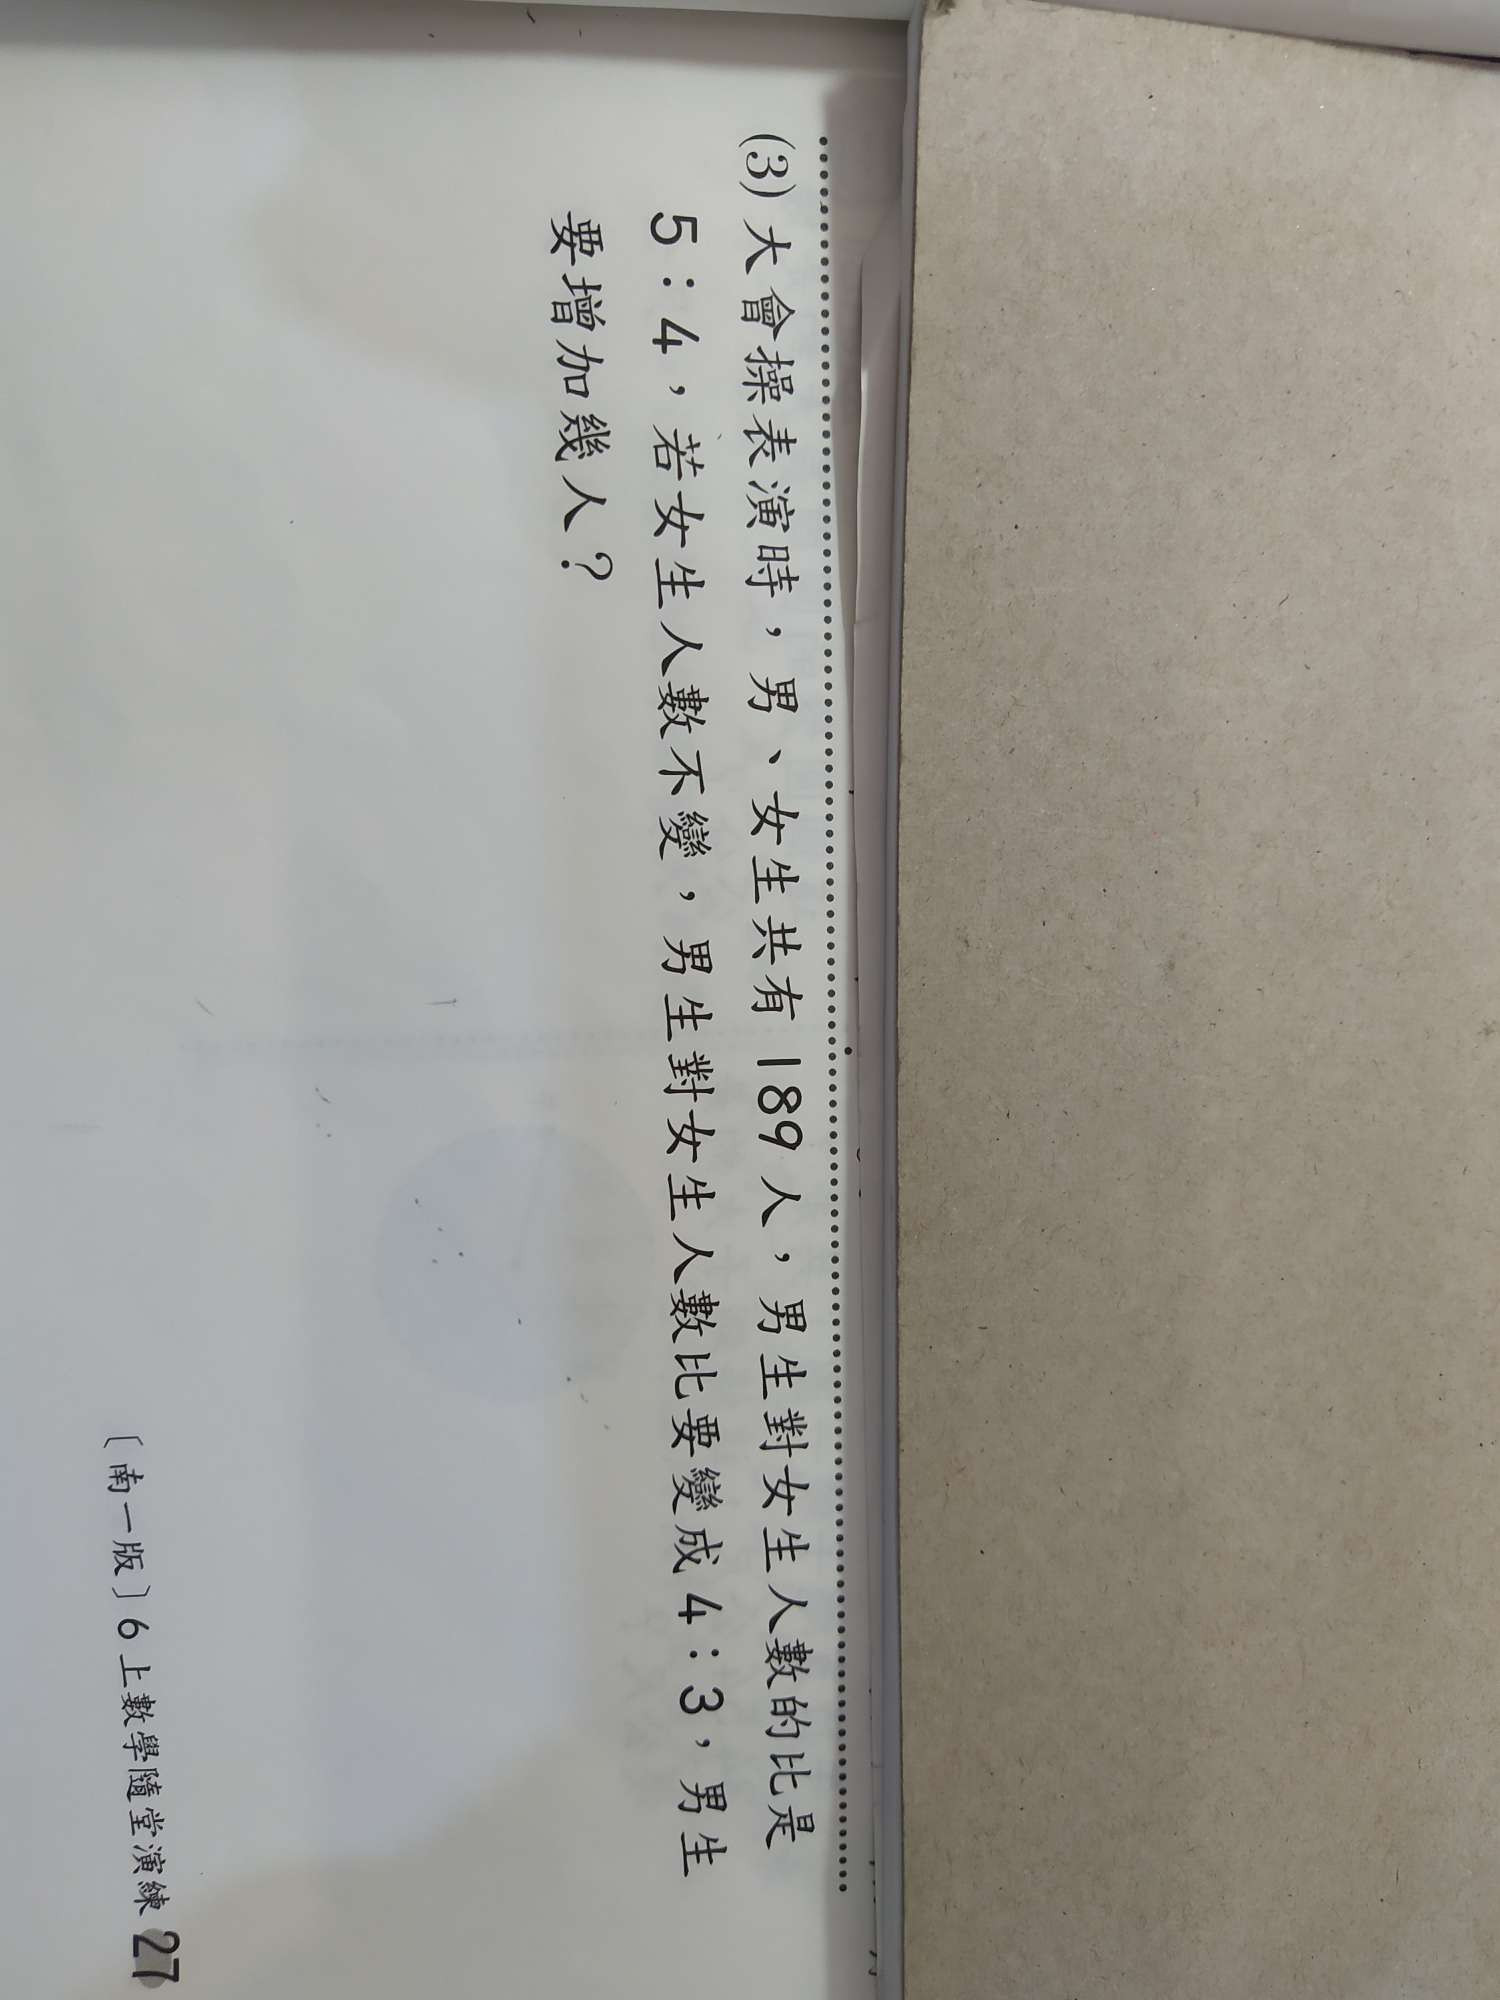 (3) 大會操表演時，男、女生共有 189 人，男生對女生人數的比是
5：4，若女生人數不變，男生對女生人數比要變成 4：3，男生
要增加幾人？
〔南一版〕6 上數學隨堂演練 27